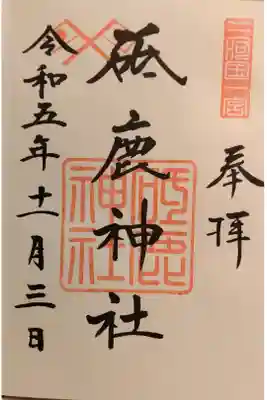 三河国一宮
奉拝
砥鹿神社
砥鹿神社
令和五年十一月三日